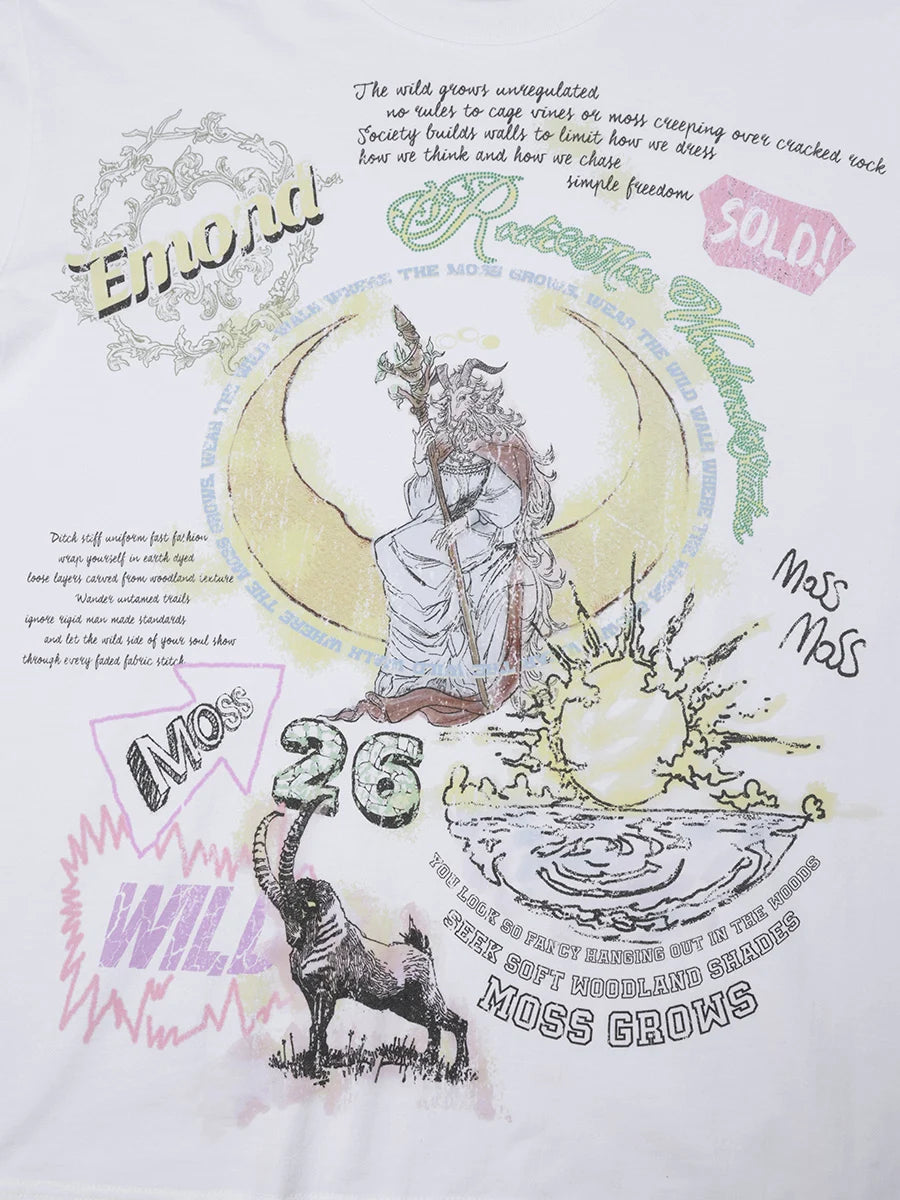 The wild grows unregulated
no rules to cage vines or moss creeping over cracked rock
Society builds walls to limit how we dress
how we think and how we chase
simple freedom
SOLD!
Emond
WHERE THE MOSS GROWS, WEAR THE WILD WALK WHERE THE MOSS
WHERE THE MOSS GROWS, WEAR THE WILD WALK
Ditch stiff uniform fast fashion
wrap yourself in earth dyed
loose layers carved from woodland texture
Wander untamed trails
ignore rigid man made standards
and let the wild side of your soul show
through every faded fabric stitch
Moss
Moss
Moss
26
WILL
YOU LOOK SO FANCY HANGING OUT IN THE WOODS
SEEK SOFT WOODLAND SHADES
MOSS GROWS